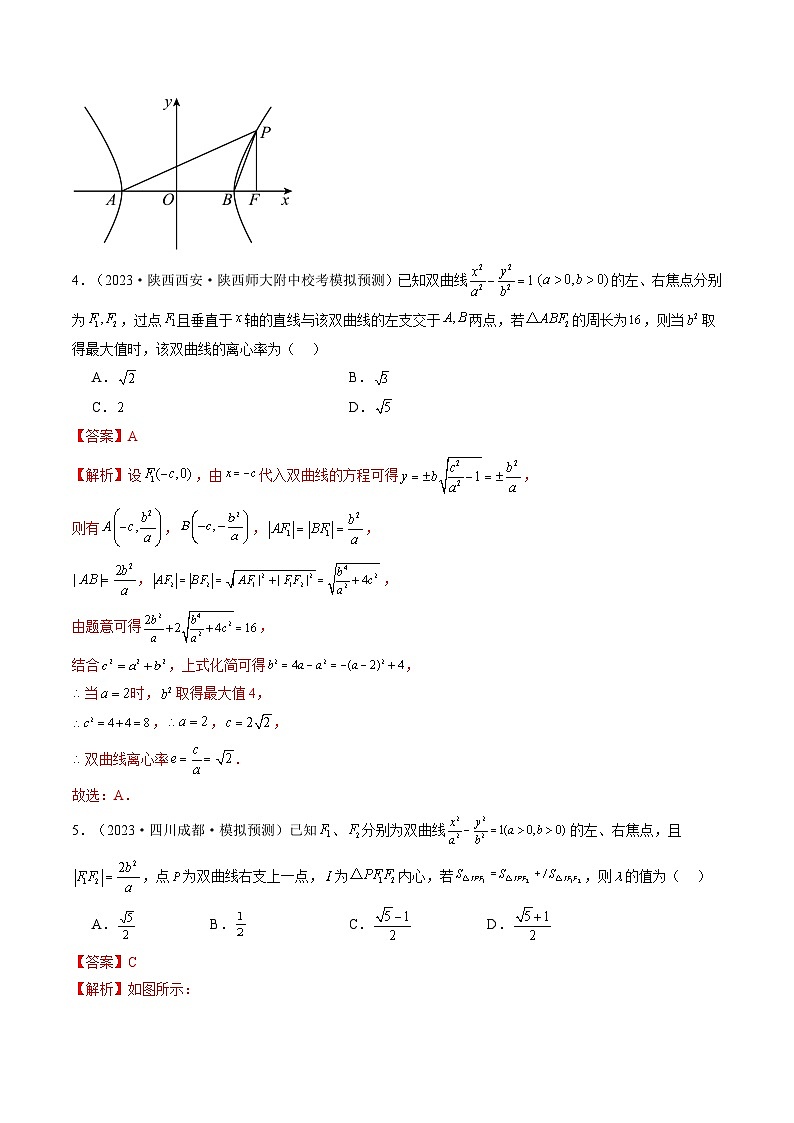 y
P
A O B F x
4.（2023·陕西西安·陕西师大附中校考模拟预测）已知双曲线 $\frac{x^2}{a^2}-\frac{y^2}{b^2}=1$ $(a>0,b>0)$ 的左、右焦点分别
为 $F_1,F_2$，过点 $F_1$ 且垂直于 $x$ 轴的直线与该双曲线的左支交于 $A,B$ 两点，若 $\triangle ABF_2$ 的周长为16，则当 $b^2$ 取
得最大值时，该双曲线的离心率为（ ）
A. $\sqrt{2}$ B. $\sqrt{3}$
C. 2 D. $\sqrt{5}$
【答案】A
【解析】设 $F_1(-c,0)$，由 $x=-c$ 代入双曲线的方程可得 $y=\pm b\sqrt{\frac{c^2}{a^2}-1}=\pm\frac{b^2}{a}$，
则有 $A\left(-c,\frac{b^2}{a}\right)$，$B\left(-c,-\frac{b^2}{a}\right)$，$|AF_1|=|BF_1|=\frac{b^2}{a}$，
$|AB|=\frac{2b^2}{a}$，$|AF_2|=|BF_2|=\sqrt{|AF_1|^2+|F_1F_2|^2}=\sqrt{\frac{b^4}{a^2}+4c^2}$，
由题意可得 $\frac{2b^2}{a}+2\sqrt{\frac{b^4}{a^2}+4c^2}=16$，
结合 $c^2=a^2+b^2$，上式化简可得 $b^2=4a-a^2=-(a-2)^2+4$，
∴当 $a=2$ 时，$b^2$ 取得最大值 4，
∴$c^2=4+4=8$，∴$a=2$，$c=2\sqrt{2}$，
∴双曲线离心率 $e=\frac{c}{a}=\sqrt{2}$．
故选：A．
5.（2023·四川成都·模拟预测）已知 $F_1$、$F_2$ 分别为双曲线 $\frac{x^2}{a^2}-\frac{y^2}{b^2}=1(a>0,b>0)$ 的左、右焦点，且
$|F_1F_2|=\frac{2b^2}{a}$，点 $P$ 为双曲线右支上一点，$I$ 为 $\triangle PF_1F_2$ 内心，若 $S_{\triangle IPF_1}=S_{\triangle IPF_2}+\lambda S_{\triangle IF_1F_2}$，则 $\lambda$ 的值为（ ）
A. $\frac{\sqrt{5}}{2}$ B. $\frac{1}{2}$ C. $\frac{\sqrt{5}-1}{2}$ D. $\frac{\sqrt{5}+1}{2}$
【答案】C
【解析】如图所示：